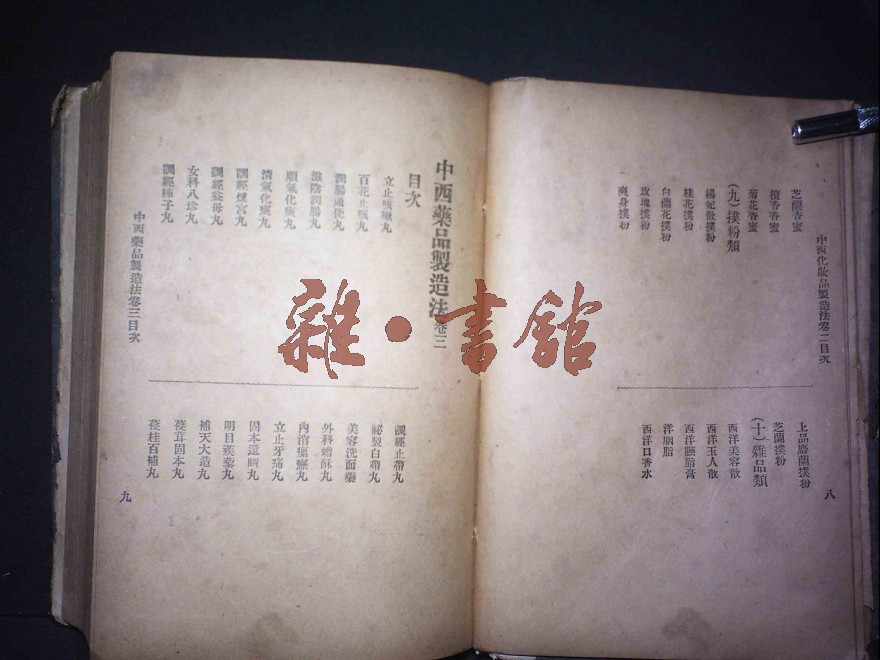 中西化妝品製造法卷二目次
芝蘭香蜜
檀香香蜜
菊花香蜜
(九)撲粉類
楊妃散撲粉
桂花撲粉
白蘭花撲粉
玫瑰撲粉
爽身撲粉
上品麝蘭撲粉
芝蘭撲粉
(十)雜品類
西洋美容散
西洋玉人散
西洋臙脂膏
洋胭脂
西洋口香水
八
中西藥品製造法卷三
目次
立止咳嗽丸
百花止咳丸
潤腸通便丸
滋陰潤腸丸
順氣化痰丸
清氣化痰丸
調經煖宮丸
調經益母丸
女科八珍丸
調經種子丸
調經止帶丸
祕製白帶丸
美容洗面藥
外科蟾酥丸
內消瘰癧丸
立止牙痛丸
固本還睛丸
明目蒺藜丸
補天大造丸
葠茸固本丸
葠桂百補丸
中西藥品製造法卷三目次
九
雜·書館